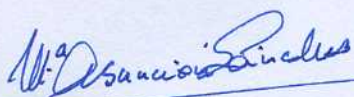 Mª Asunción Sánchez